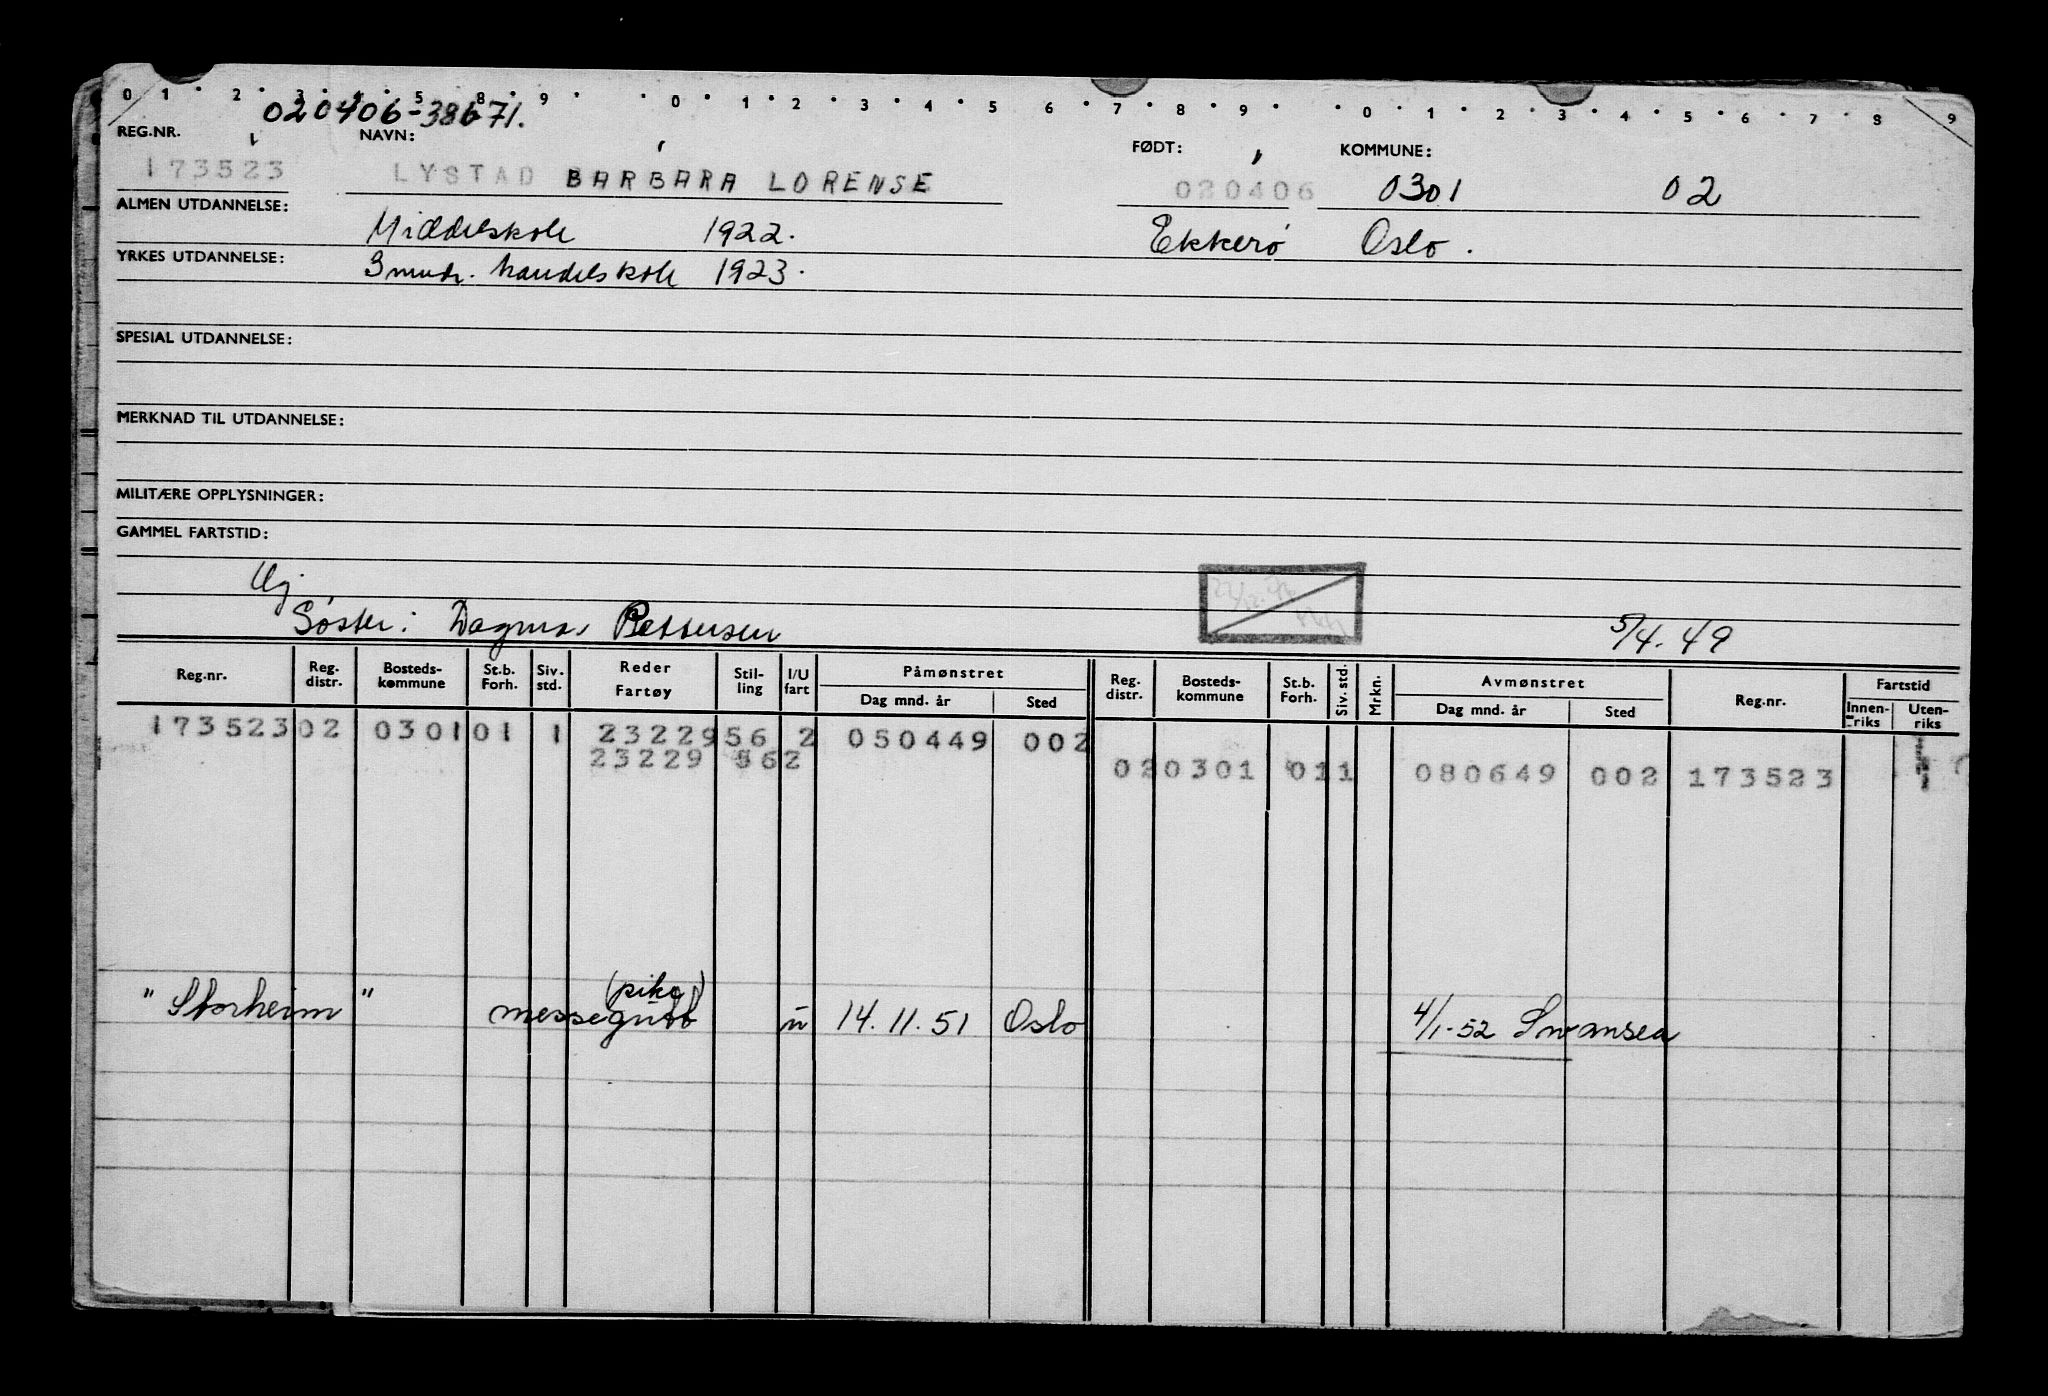 0 1 2 3 4 5 8 9 0 1 2 3 4 5 6 7 8 9 0 1 2 3 4 5 6 7 8 9
020406-38671.
REG.NR. NAVN: FØDT: KOMMUNE:
173523 LYSTAD BARBARA LORENSE 020406 0301 02
ALMEN UTDANNELSE: Middelskole 1922. Ekkerø Oslo.
YRKES UTDANNELSE: 3 mndr. handelskole 1923.
SPESIAL UTDANNELSE:
MERKNAD TIL UTDANNELSE:
MILITÆRE OPPLYSNINGER:
GAMMEL FARTSTID:
Uj
Søster: Dagmar Pettersen 5/4.49
Reg.nr. Reg. distr. Bosteds-kommune St.b. Forh. Siv. std. Reder Fartøy Stil-ling I/U fart Påmønstret Dag mnd. år Sted Reg. distr. Bosteds-kommune St.b. Forh. Siv. std. Mrkn. Avmønstret Dag mnd. år Sted Reg.nr. Fartstid Innen-riks Uten-riks
173523 02 0301 01 1 23229 56 2 050449 002
23229 56 2 02 0301 01 1 080649 002 173523
(pike)
"Storheim" messegutt u 14.11.51 Oslo 4/1-52 Swansea